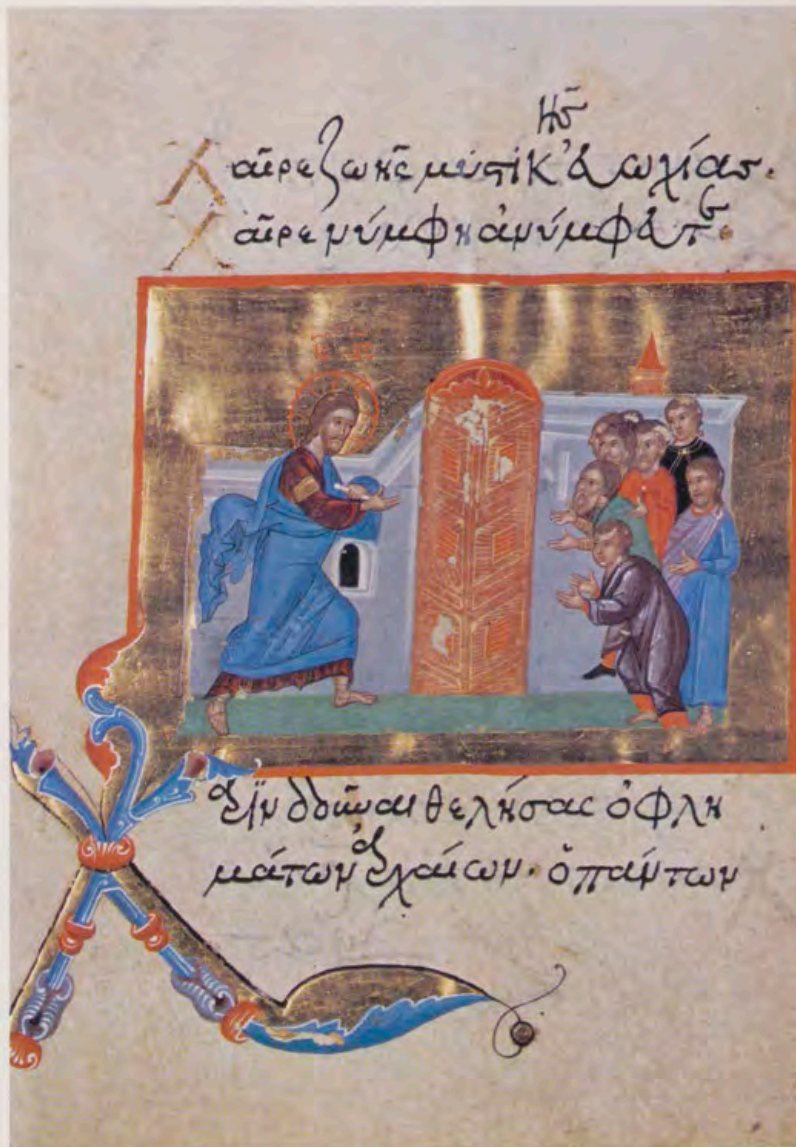 Χαῖρε ζωῆς μυστικῆς εὐωχίας.
Χαῖρε νύμφη ἀνύμφευτε.
ΙϹ ΧϹ
Χάριν δοῦναι θελήσας ὀφλη
μάτων ἀρχαίων. ὁ πάντων